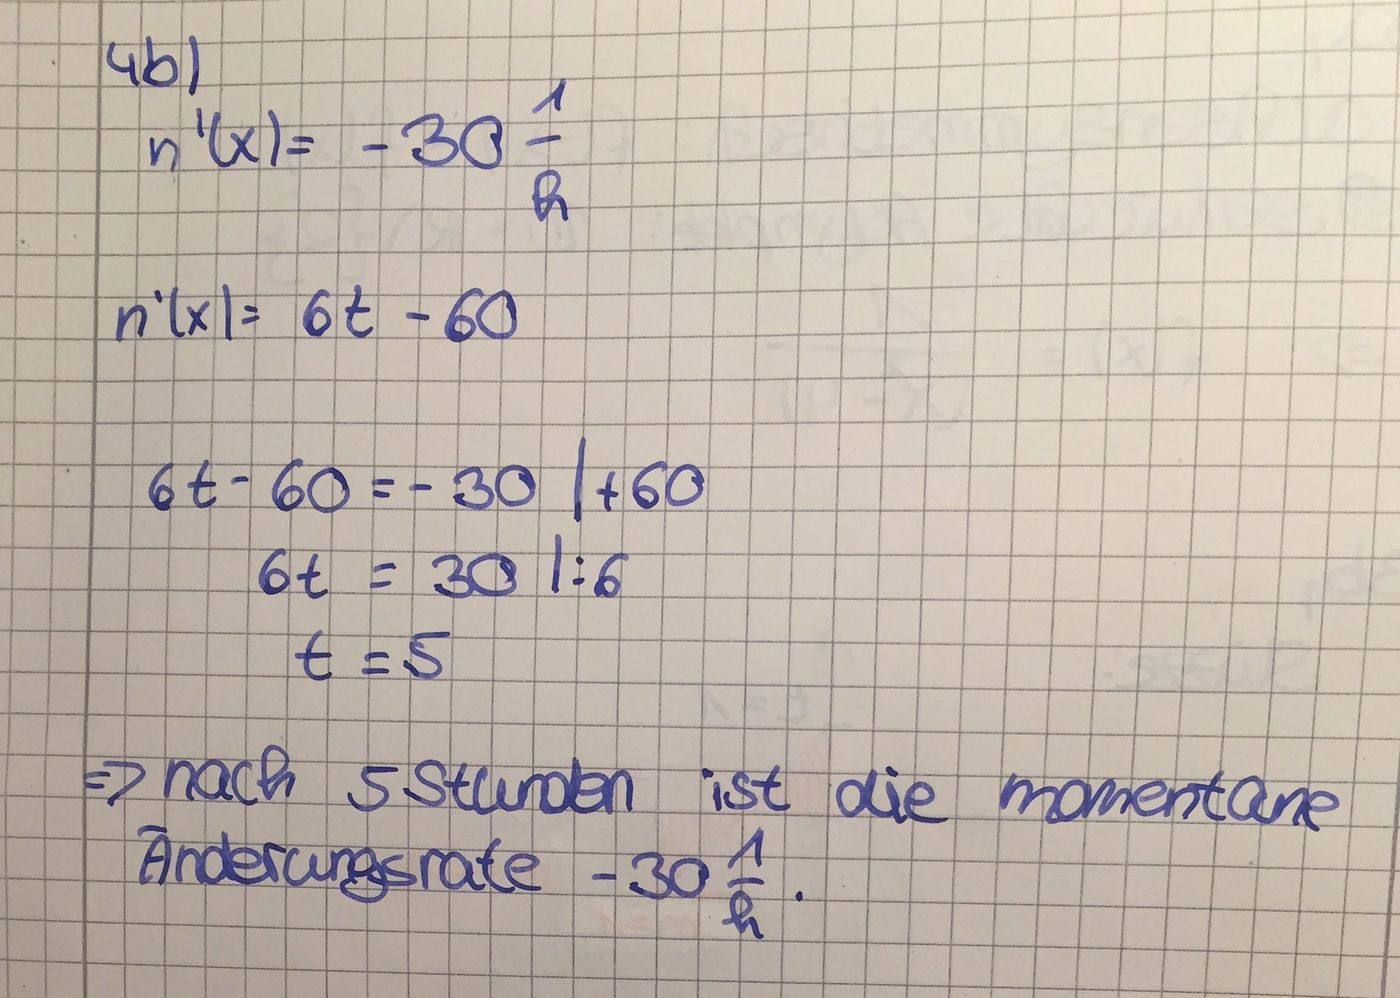 4b)
n'(x) = -30 1/h
n'(x) = 6t - 60
6t - 60 = -30 | +60
6t = 30 | :6
t = 5
=> nach 5 Stunden ist die momentane
Änderungsrate -30 1/h.